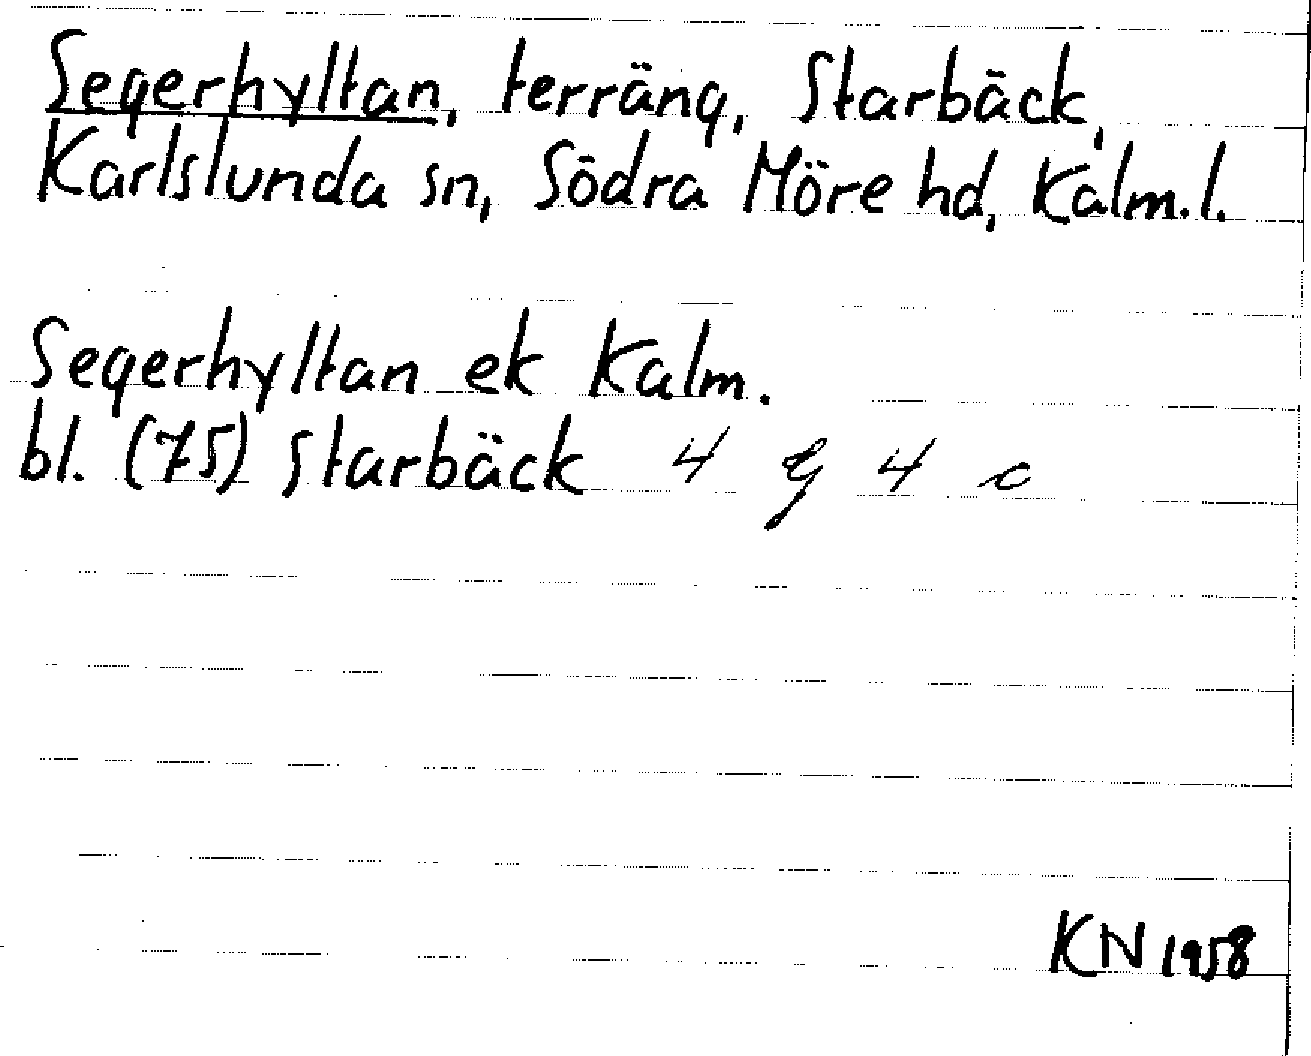 Segerhyltan, terräng, Starbäck,
Karlslunda sn, Södra Möre hd, Kalm. l.
Segerhyltan ek Kalm.
bl. (75) Starbäck 4 G 4 c
KN 1958